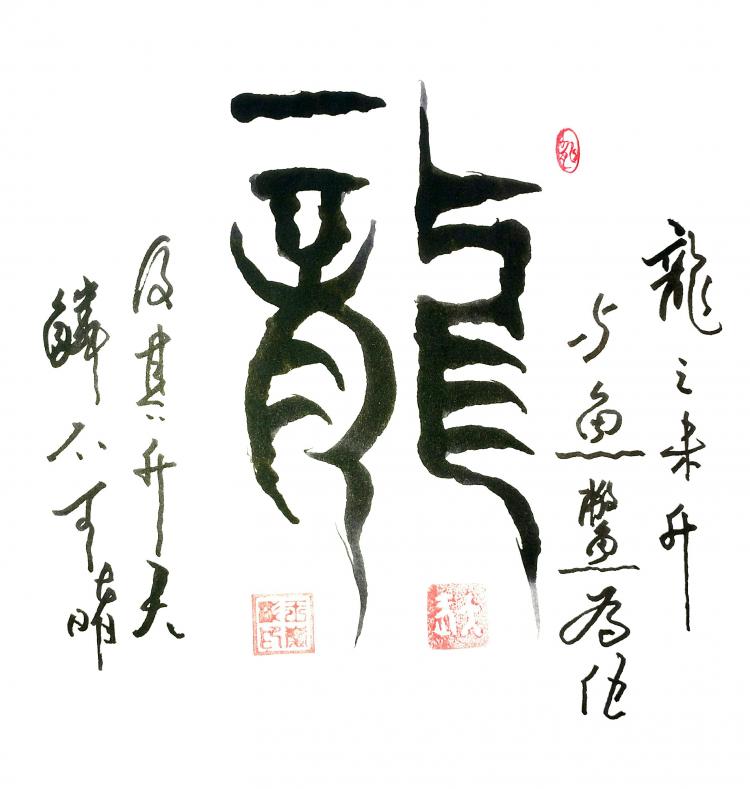 龍之未升
与魚鱉為伍
龍
及其升天
鱗不可睹